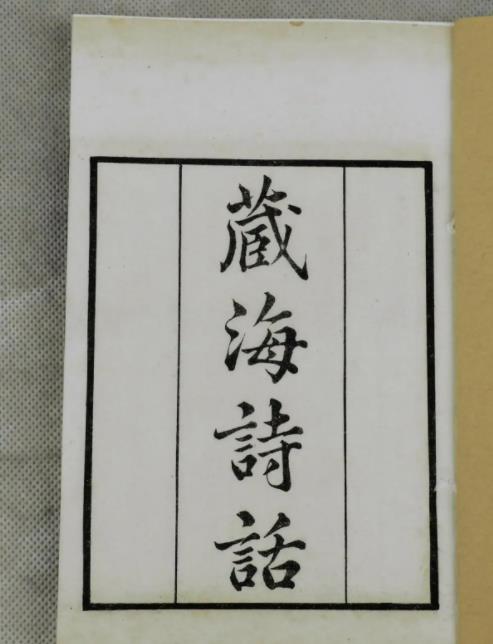 藏海詩話